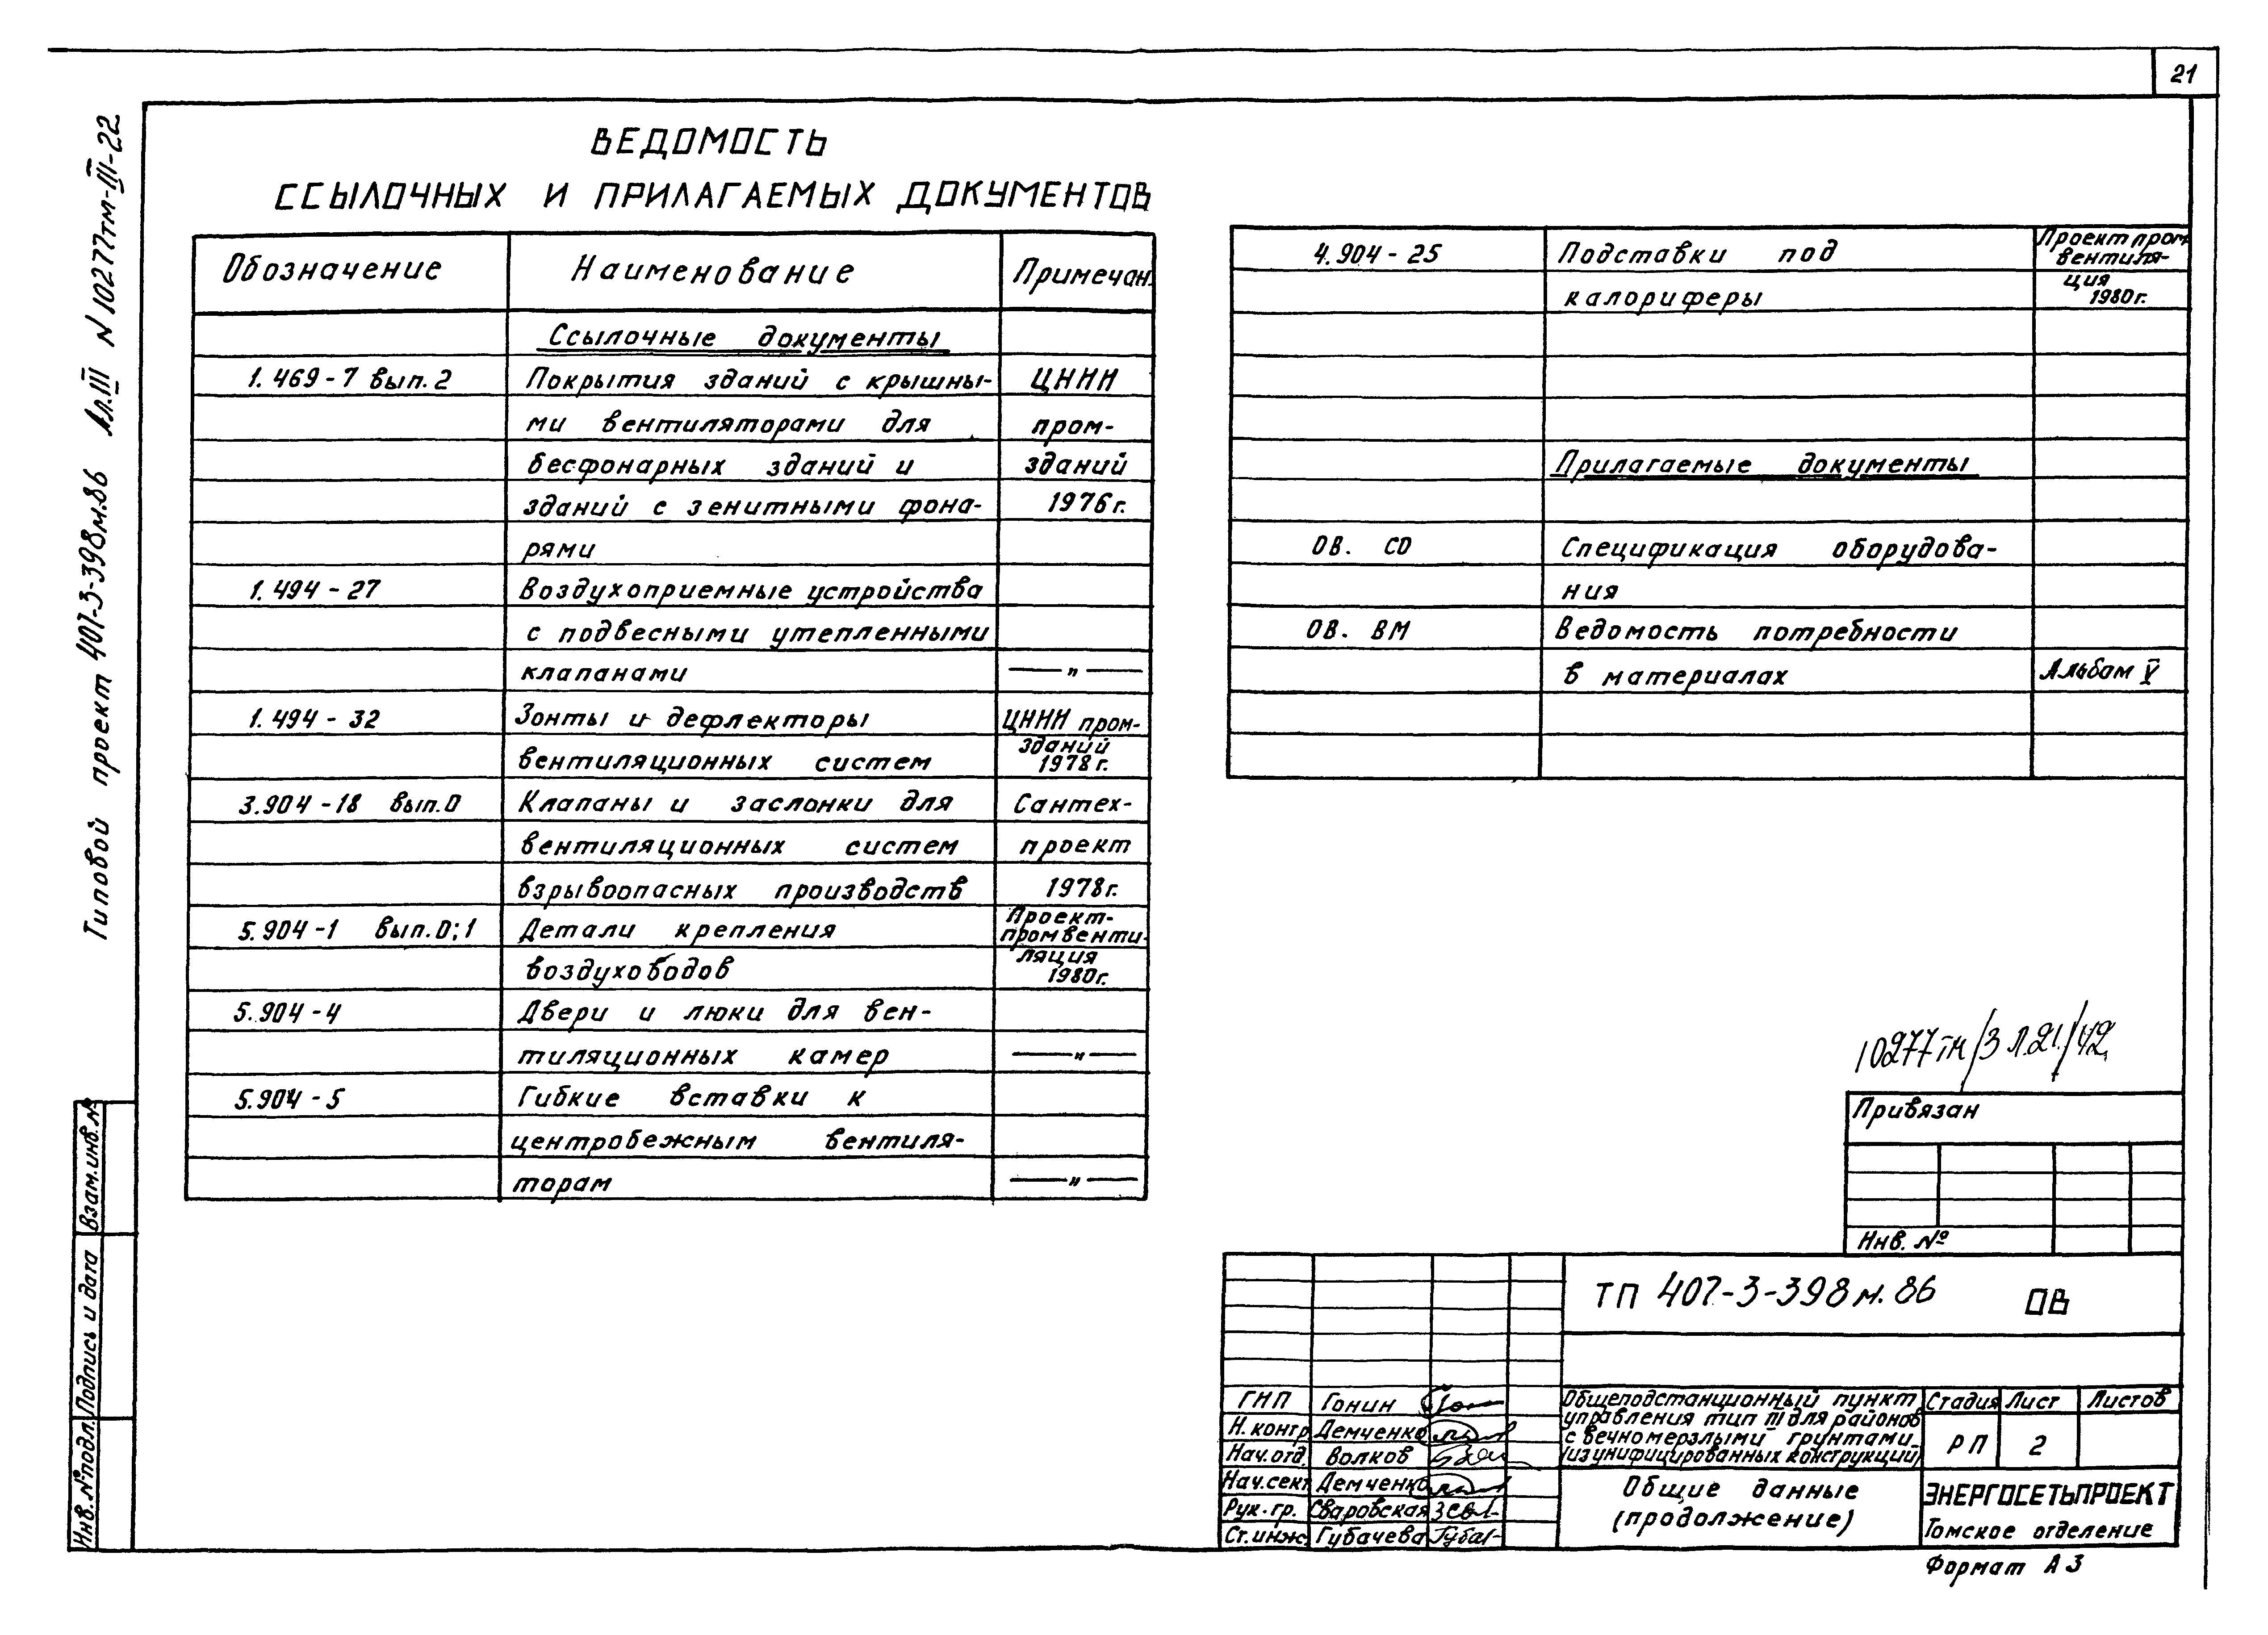 21
Типовой проект 407-3-398м.86 Ал.III N10277тм-III-22
ВЕДОМОСТЬ
ССЫЛОЧНЫХ И ПРИЛАГАЕМЫХ ДОКУМЕНТОВ
Обозначение Наименование Примечан.
Ссылочные документы
1.469-7 вып.2 Покрытия зданий с крышны- ЦНИИ
ми вентиляторами для пром-
бесфонарных зданий и зданий
зданий с зенитными фона- 1976г.
рями
1.494-27 Воздухоприемные устройства
с подвесными утепленными
клапанами —"—
1.494-32 Зонты и дефлекторы ЦНИИ пром-
зданий
вентиляционных систем 1978г.
3.904-18 вып.0 Клапаны и заслонки для Сантех-
вентиляционных систем проект
взрывоопасных производств 1978г.
Проект-
5.904-1 вып.0;1 Детали крепления промвенти-
ляция
воздуховодов 1980г.
5.904-4 Двери и люки для вен-
тиляционных камер —"—
5.904-5 Гибкие вставки к
центробежным вентиля-
торам —"—
Проект пром
4.904-25 Подставки под вентиля-
ция
калориферы 1980г.
Прилагаемые документы
ОВ. СО Спецификация оборудова-
ния
ОВ. ВМ Ведомость потребности
в материалах Альбом V
10277тм/3 Л.21/42
Привязан
Инв. №
ТП 407-3-398м.86 ОВ
ГИП Гонин
Н.контр Демченко
Нач.отд. Волков
Нач.сект Демченко
Рук.гр. Сваровская
Ст.инж. Губачева
Общеподстанционный пункт
управления тип III для районов
с вечномерзлыми грунтами
(из унифицированных конструкций)
Стадия Лист Листов
РП 2
Общие данные
(продолжение)
ЭНЕРГОСЕТЬПРОЕКТ
Томское отделение
Формат А3
Взам.инв.№
Подпись и дата
Инв.№подл.